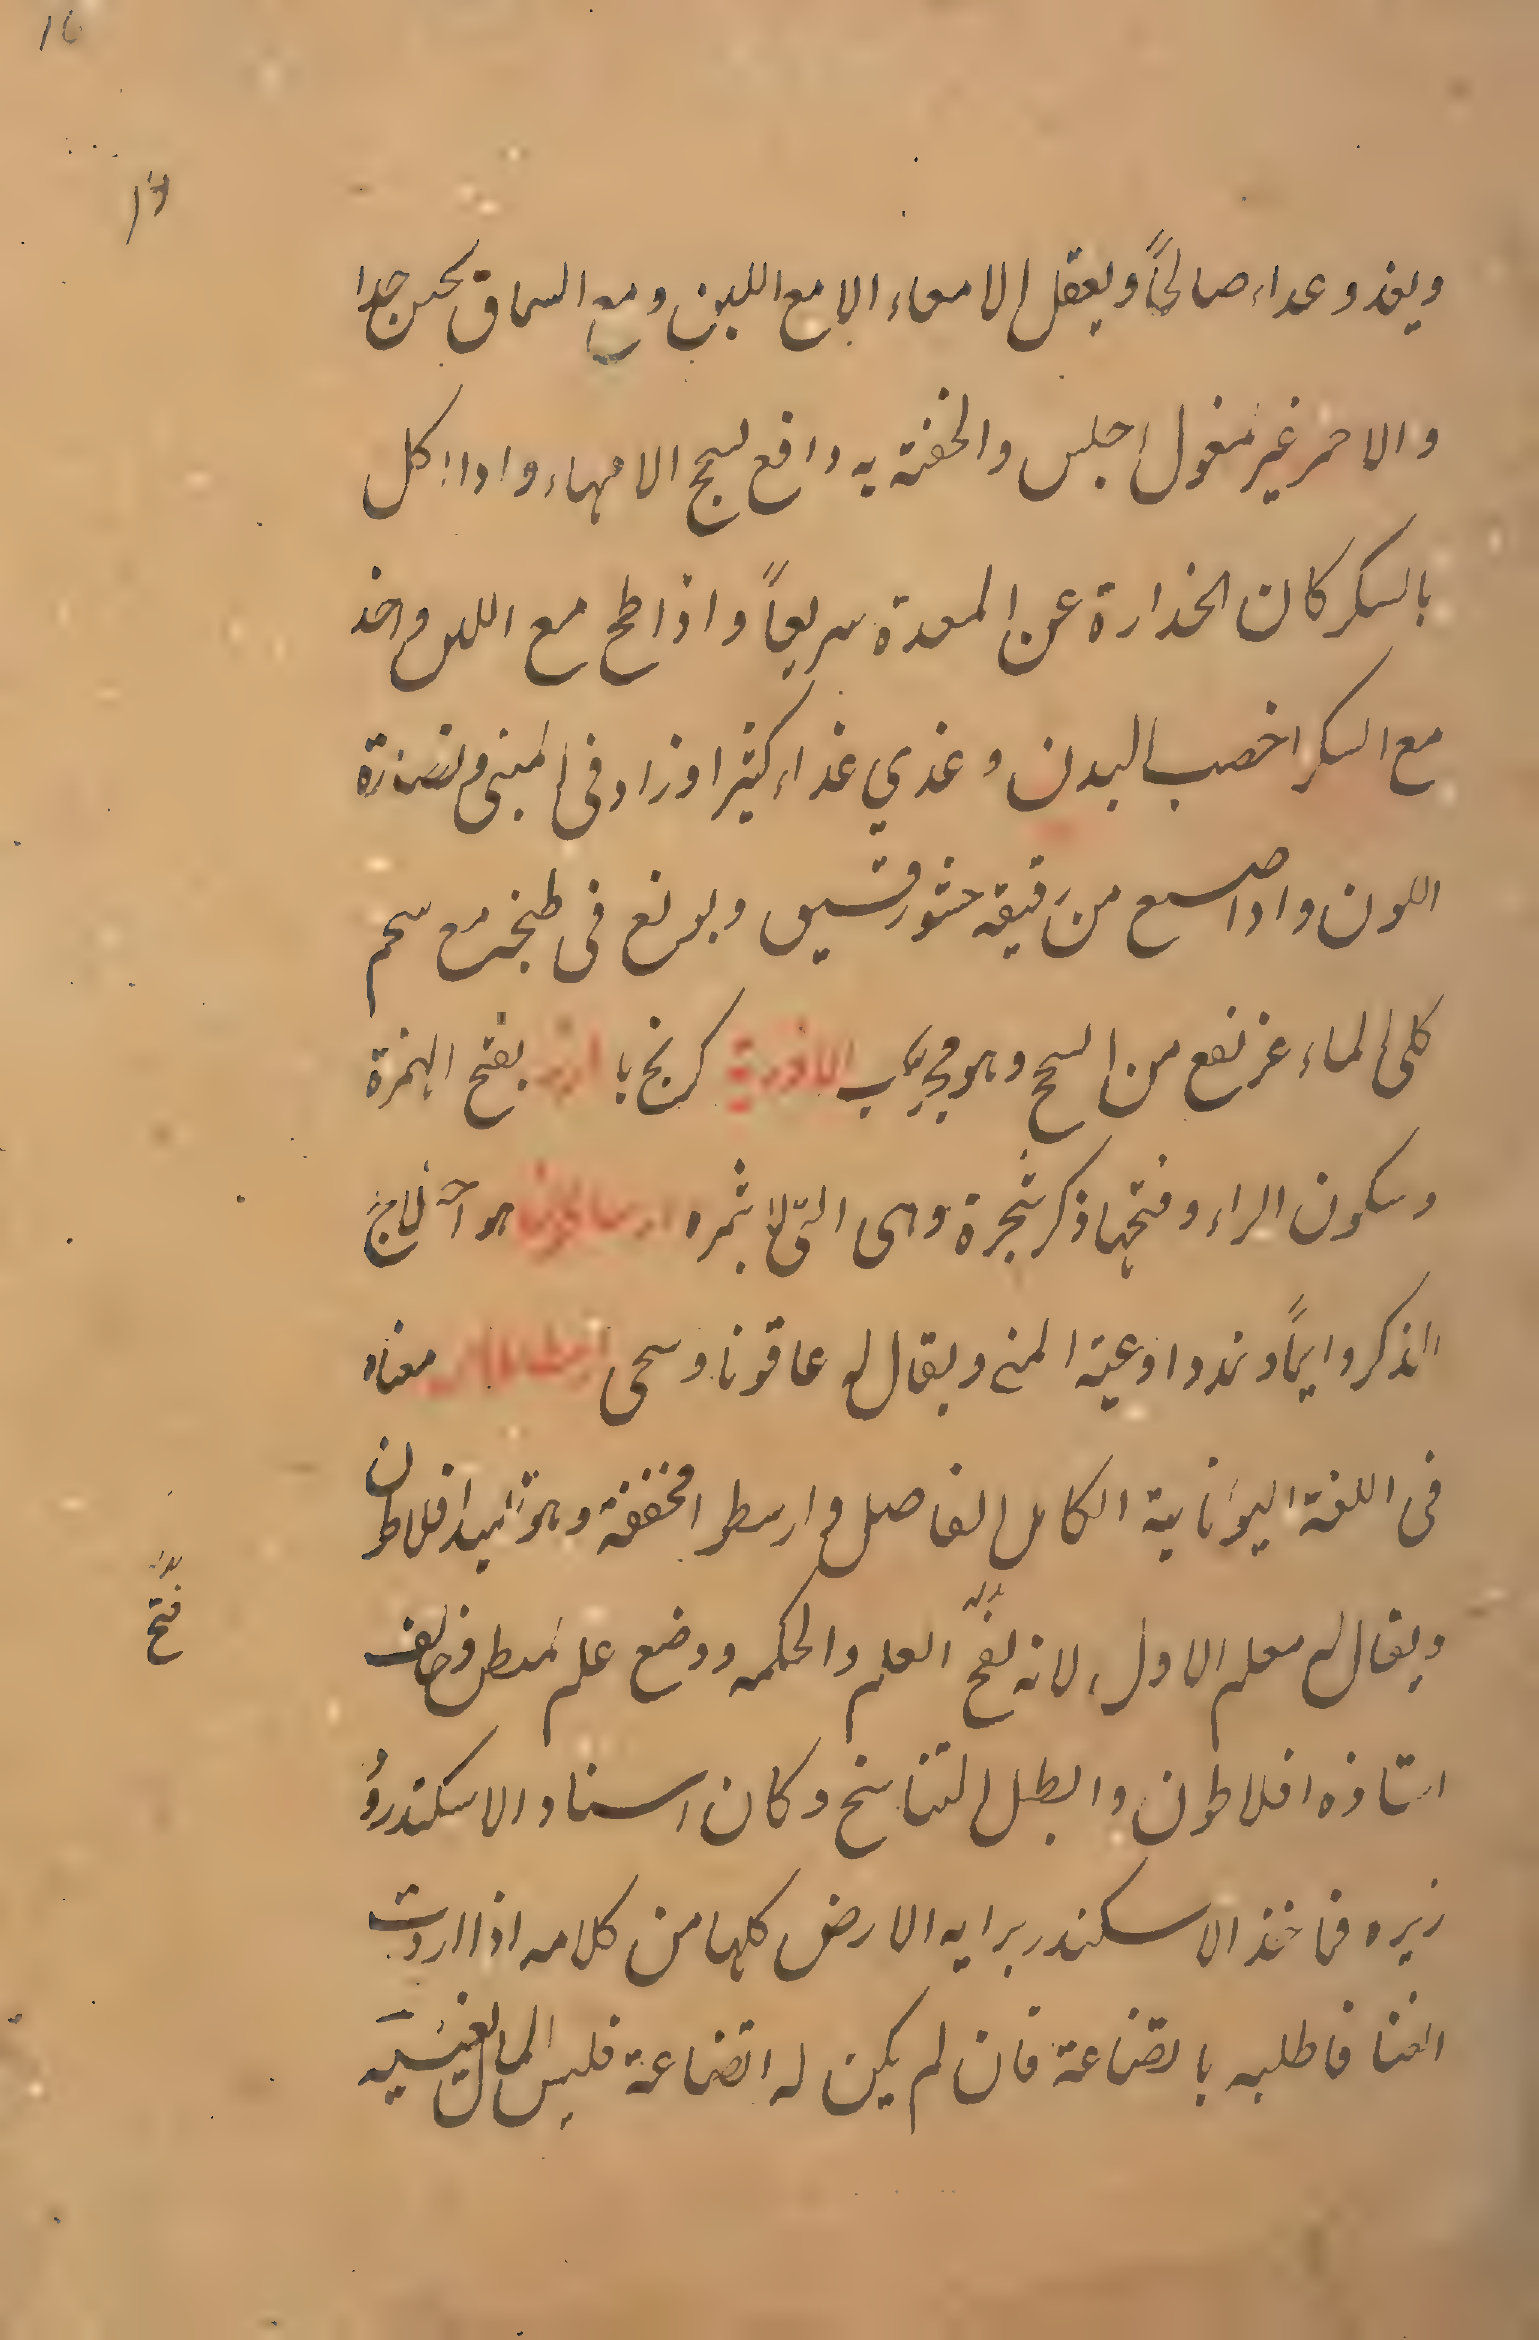 16
ويغذو عداء صالحاً ويعقل الامعاء الا مع اللبن ومع السماق يحبس جدا
والاحمر غير مغول احبس والحقنة به دافع لسحج الامهاء واداا كل
بالسكر كان انحذارة عن المعدة سريعاً واذا طبخ مع اللبن واخذ
مع السكر اخصب البدن وغذي غذاء كثيرا وزاد في المني ونضارة
اللون واداصنع من دقيقه حشو رقيق وبولغ في طبخه مع سحم
كلى الماء عز نفع من السحج وهو مجرب كرنج با بفتح الهمزة
وسكون الراء وفتحها ذكر شجرة وهي التي لا ثمره هو اختلاج
الذكر دايماً وتمدد اوعية المنى ويقال له عاقونا وسحى معناه
في اللغة اليونانية الكامل الفاضل وارسطو مخففة وهو تلميذ افلاطن
ويقال له معلم الاول لانه نقح العلم والحكمه ووضع علم لمنطق وخالف
استاذه افلاطون وابطل التناسخ وكان استاد الاسكندر وو
زيره فما خذ الاسكندر برايه الارض كلها من كلامه اذا اردت
الغنا فاطلبه بالقناعة فان لم يكن له القناعة فليس المال يغنيه
فتح